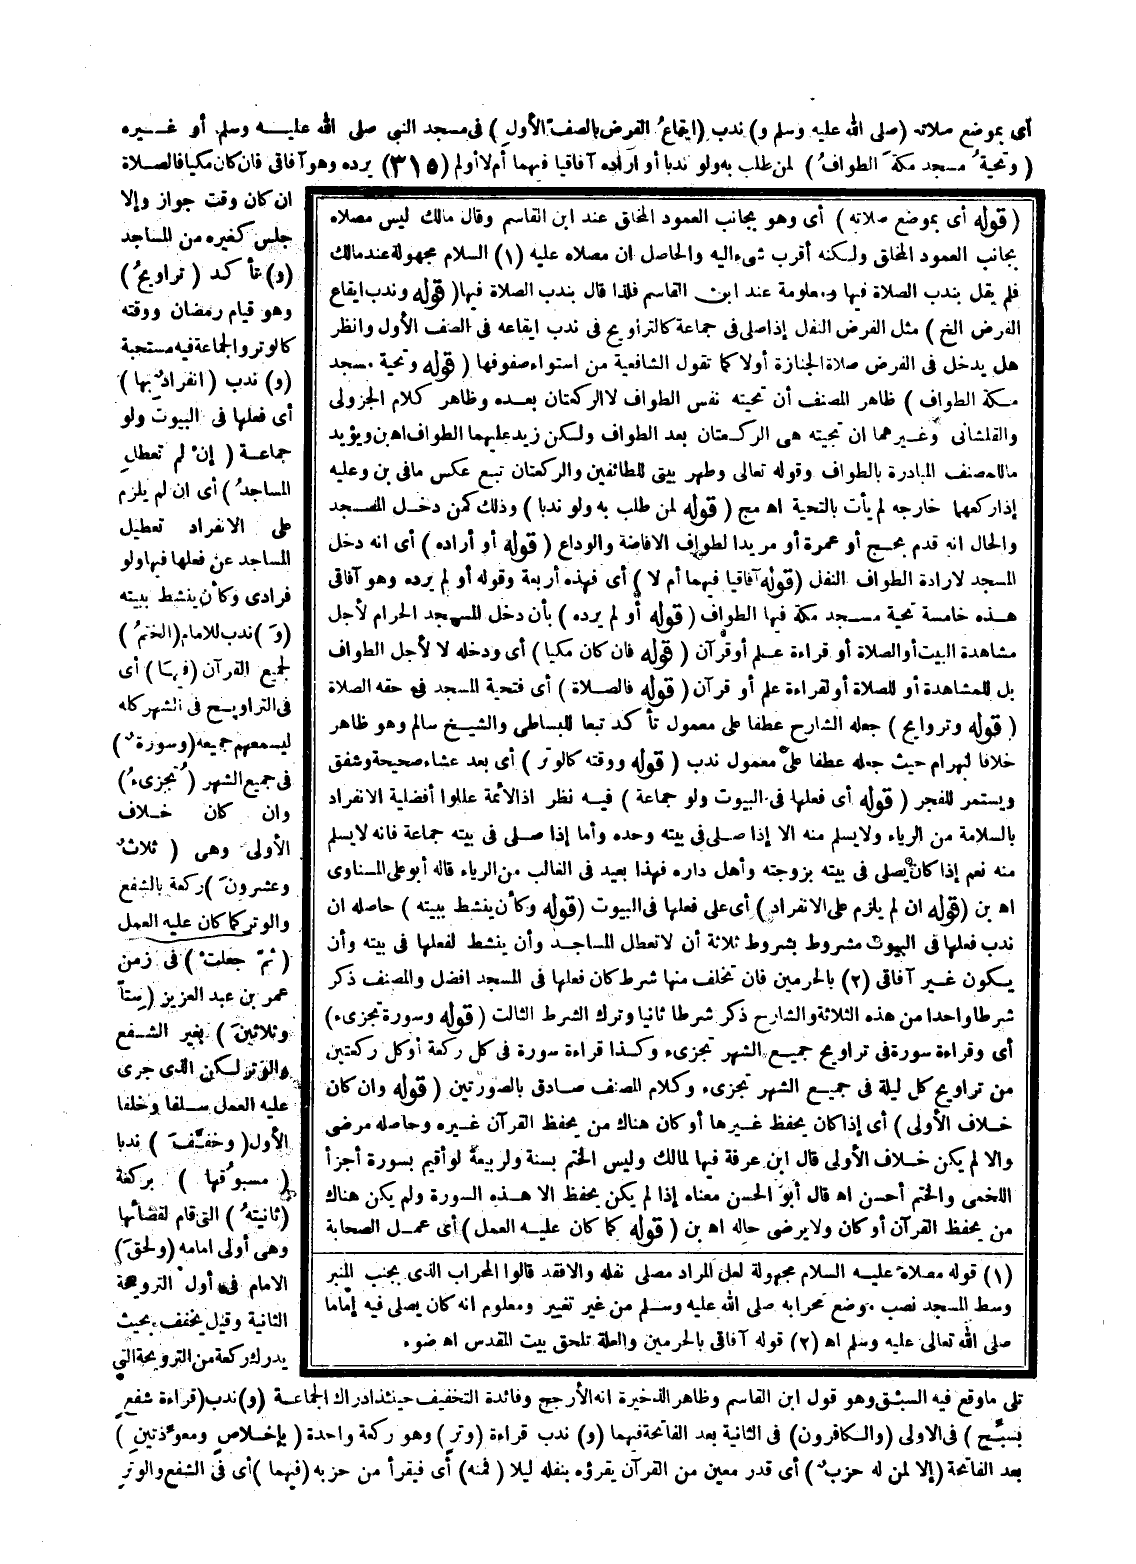 أى بموضع صلاته (صلى الله عليه وسلم و) ندب (ايقاعُ الفرض بالصف الأولِ) فى مسجد النبى صلى الله عليه وسلم أو غيره
(وتحيةُ مسجد مكةَ الطوافُ) لمن طلب به ولو ندبا أو أراده آفاقيا فيهما أم لا أولم (٣١٥) يرده وهو آفاقى فان كان مكيا فالصلاة
ان كان وقت جواز وإلا
جلس كغيره من المساجد
(و) تأكد (تراويحُ)
وهو قيام رمضان ووقته
كالوتر والجماعة فيه مستحبة
(و) ندب (انفرادٌ بها)
أى فعلها فى البيوت ولو
جماعة (إنْ لم تعطلِ
المساجدُ) أى ان لم يلزم
على الانفراد تعطيل
المساجد عن فعلها فيها ولو
فرادى وكأن ينشط ببيته
(وَ) ندب للامام (الختمُ)
لجميع القرآن (فيها) أى
فى التراويح فى الشهر كله
ليسمعهم جميعه (وسورةٌ)
فى جميع الشهر (تُجزىءُ)
وان كان خلاف
الأولى وهى (ثلاثٌ
وعشرونَ) ركعة بالشفع
والوتر كما كان عليه العمل
(ثمّ جعلتْ) فى زمن
عمر بن عبد العزيز (ستاً
وثلاثينَ) بغير الشفع
والوتر لكن الذى جرى
عليه العمل سلفا وخلفا
الأول (وخففَ) ندبا
(مسبوقُها) بركعة
(ثانيتهُ) التى قام لقضائها
وهى أولى امامه (ولحقَ)
الامام فى أول الترويحة
الثانية وقيل يخفف بحيث
يدرك ركعة من الترويحة التى
(قوله أى بموضع صلاته) أى وهو بجانب العمود المخلق عند ابن القاسم وقال مالك ليس مصلاه
بجانب العمود المخلق ولكنه أقرب شىء اليه والحاصل ان مصلاه عليه (١) السلام مجهولة عند مالك
فلم يقل بندب الصلاة فيها ومعلومة عند ابن القاسم فلذا قال بندب الصلاة فيها (قوله وندب ايقاع
الفرض الخ) مثل الفرض النفل إذا صلى فى جماعة كالتراويح فى ندب ايقاعه فى الصف الأول وانظر
هل يدخل فى الفرض صلاة الجنازة أولا كما تقول الشافعية من استواء صفوفها (قوله وتحية مسجد
مكة الطواف) ظاهر المصنف أن تحيته نفس الطواف لا الركعتان بعده وظاهر كلام الجزولى
والقلشانى وغيرهما ان تحيته هى الركعتان بعد الطواف ولكن زيد عليهما الطواف اه بن ويؤيد
ما للمصنف المبادرة بالطواف وقوله تعالى وطهر بيتى للطائفين والركعتان تبع عكس مافى بن وعليه
إذا ركعهما خارجه لم يأت بالتحية اه مج (قوله لمن طلب به ولو ندبا) وذلك كمن دخل المسجد
والحال انه قدم بحج أو عمرة أو مريدا لطواف الافاضة والوداع (قوله أو أراده) أى انه دخل
المسجد لارادة الطواف النفل (قوله آفاقيا فيهما أم لا) أى فهذه أربعة وقوله أو لم يرده وهو آفاقى
هذه خامسة تحية مسجد مكة فيها الطواف (قوله أو لم يرده) بأن دخل للمسجد الحرام لأجل
مشاهدة البيت أو الصلاة أو قراءة علم أو قرآن (قوله فان كان مكيا) أى ودخله لا لأجل الطواف
بل للمشاهدة أو للصلاة أو لقراءة علم أو قرآن (قوله فالصلاة) أى فتحية المسجد فى حقه الصلاة
(قوله وتراويح) جعله الشارح عطفا على معمول تأكد تبعا للبساطى والشيخ سالم وهو ظاهر
خلافا لبهرام حيث جعله عطفا على معمول ندب (قوله ووقته كالوتر) أى بعد عشاء صحيحة وشفق
ويستمر للفجر (قوله أى فعلها فى البيوت ولو جماعة) فيه نظر اذ الأئمة عللوا أفضلية الانفراد
بالسلامة من الرياء ولا يسلم منه الا إذا صلى فى بيته وحده وأما إذا صلى فى بيته جماعة فانه لا يسلم
منه نعم إذا كان يصلى فى بيته بزوجته وأهل داره فهذا بعيد فى الغالب من الرياء قاله أبو على المسناوى
اه بن (قوله ان لم يلزم على الانفراد) أى على فعلها فى البيوت (قوله وكأن ينشط ببيته) حاصله ان
ندب فعلها فى البيوت مشروط بشروط ثلاثة أن لا تعطل المساجد وأن ينشط لفعلها فى بيته وأن
يكون غير آفاقى (٢) بالحرمين فان تخلف منها شرط كان فعلها فى المسجد افضل والمصنف ذكر
شرطا واحدا من هذه الثلاثة والشارح ذكر شرطا ثانيا وترك الشرط الثالث (قوله وسورة تجزىء)
أى وقراءة سورة فى تراويح جميع الشهر تجزىء وكذا قراءة سورة فى كل ركعة أو كل ركعتين
من تراويح كل ليلة فى جميع الشهر تجزىء وكلام المصنف صادق بالصورتين (قوله وان كان
خلاف الأولى) أى إذا كان يحفظ غيرها أو كان هناك من يحفظ القرآن غيره وحاصله مرضى
والا لم يكن خلاف الأولى قال ابن عرفة فيها لمالك وليس الختم بسنة ولربيعة لو أقيم بسورة أجزأ
اللخمى والختم أحسن اه قال أبو الحسن معناه إذا لم يكن يحفظ الا هذه السورة ولم يكن هناك
من يحفظ القرآن أو كان ولا يرضى حاله اه بن (قوله كما كان عليه العمل) أى عمل الصحابة
(١) قوله مصلاه عليه السلام مجهولة لعل المراد مصلى نفله والا فقد قالوا المحراب الذى بجنب المنبر
وسط المسجد نصب موضع محرابه صلى الله عليه وسلم من غير تغيير ومعلوم انه كان يصلى فيه إماما
صلى الله تعالى عليه وسلم اه (٢) قوله آفاقى بالحرمين والعلة تلحق بيت المقدس اه ضوء
تلى ما وقع فيه السبق وهو قول ابن القاسم وظاهر الذخيرة انه الأرجح وفائدة التخفيف حينئذ ادراك الجماعة (و) ندب (قراءة شفعٍ
بسبِّح) فى الاولى (والكافرون) فى الثانية بعد الفاتحة فيهما (و) ندب قراءة (وترٍ) وهو ركعة واحدة (بإخلاصٍ ومعوّذتينِ)
بعد الفاتحة (إلا لمن له حزبٌ) أى قدر معين من القرآن يقرؤه بنفله ليلا (فمنه) أى فيقرأ من حزبه (فيهما) أى فى الشفع والوتر